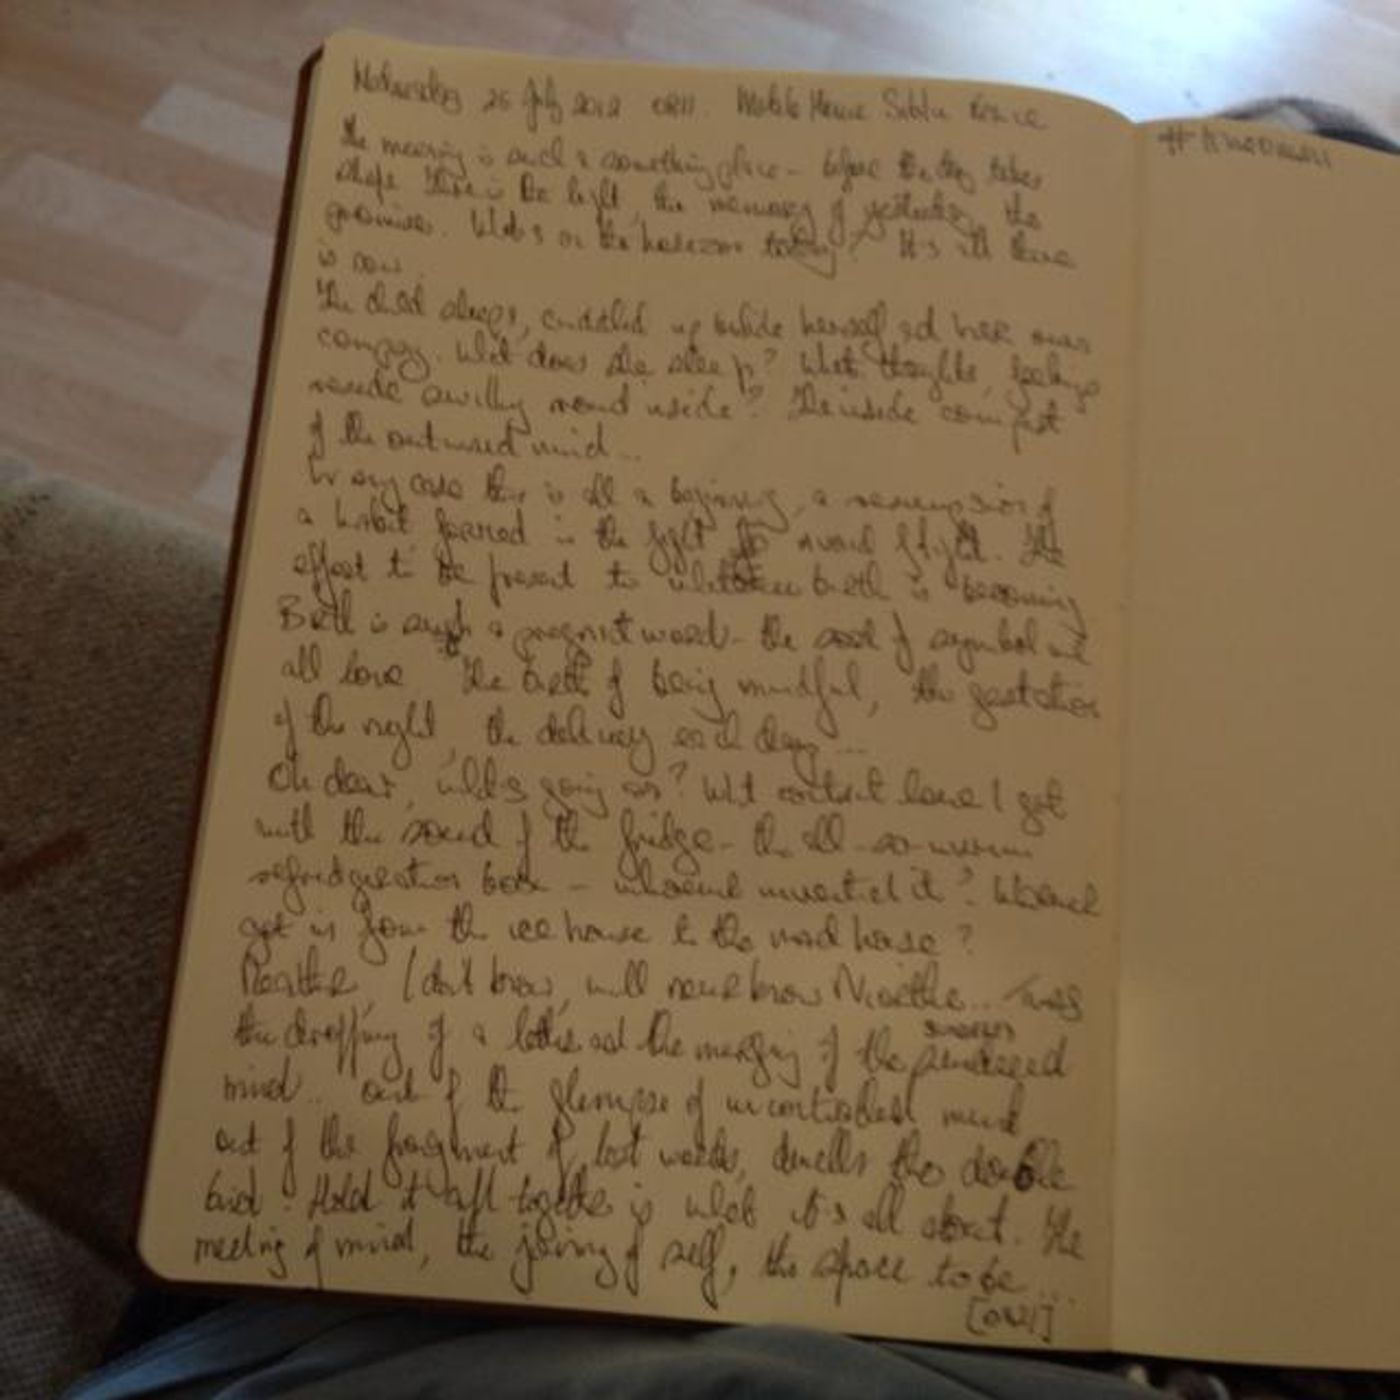 Wednesday 25 July 2012 0811. Mobile Home France
The morning is such a something place - before the day takes
shape there is the light, the memory of yesterday, the
promises. What's on the horizon today? It's all there
is now.
The child sleeps, cuddled up inside herself and her own
company. What does she sleep? What thoughts, feelings
round inside? The inside comfort
of the outward mind...
In any case this is all a beginning, a resumption of
a habit formed in the fight to avoid flight. The
effort to be present to whatever birth is becoming
Birth is such a pregnant word - the sort of symbol we
all love. The birth of being mindful, the gestation
of the night, the delivery each day ...
Oh dear, what's going on? What contact have I got
with the sound of the fridge - the all-so-
refridgeration box - whoever invented it? Whoever
got us from the ice house to the mad house?
Reader, I don't know, will never know Niether...
the dropping of a letter and the merging of the
mind.. out of the glimpse of mind
out of the fragment of lost words, dwells the double
bind. Hold it all together is what it's all about. The
meeting of mind, the joining of self, the space to be...
[0821]